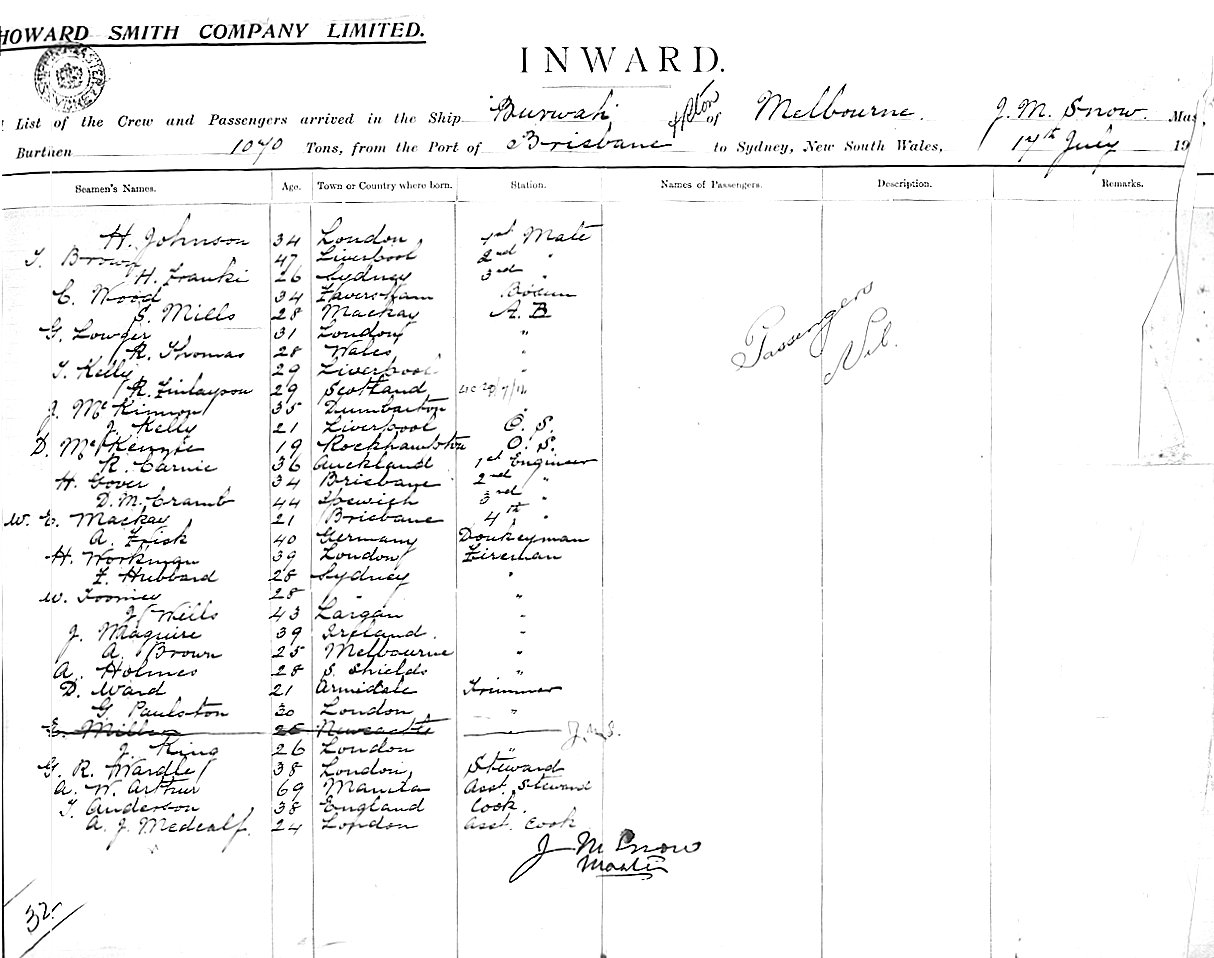 HOWARD SMITH COMPANY LIMITED.
INWARD.
List of the Crew and Passengers arrived in the Ship Burwah of Melbourne. J. M. Snow. Mas
Burthen 1070 Tons, from the Port of Brisbane to Sydney, New South Wales, 17th July 19
Seamen's Names. Age. Town or Country where born. Station. Names of Passengers. Description. Remarks.
H. Johnson 34 London 1st Mate
T. Brown 47 Liverpool 2nd "
H. Franki 26 Sydney 3rd "
C. Wood 34 Faversham Bosun
S. Mills 28 Mackay A. B
G. Lowgir 31 London "
R. Thomas 28 Wales "
T. Kelly 29 Liverpool "
R. Finlayson 29 Scotland
J. McKinnon 35 Dumbarton "
J. Kelly 21 Liverpool O. S.
D. McKenzie 19 Rockhampton O. S.
R. Carnie 36 Auckland 1st Engineer
H. Gover 34 Brisbane 2nd "
D. M. Cramb 44 Ipswich 3rd "
W. E. Mackay 21 Brisbane 4th "
A. Frisk 40 Germany Donkeyman
H. Workman 39 London Fireman
F. Hubbard 28 Sydney "
W. Toomey 28 " "
J. Wells 43 Largan "
J. Maguire 39 Ireland. "
A. Brown 25 Melbourne "
A. Holmes 28 S. Shields "
D. Ward 21 Armidale Trimmer
G. Paulston 30 London "
E. Miller 26 Newcastle J. M. S.
J. King 26 London "
G. R. Wardle 38 London, Steward
A. W. Arthur 69 Manila Asst. Steward
T. Anderson 38 England Cook.
A. J. Medcalf. 24 London Asst. Cook
Passengers
Nil.
J M Snow
Master
32